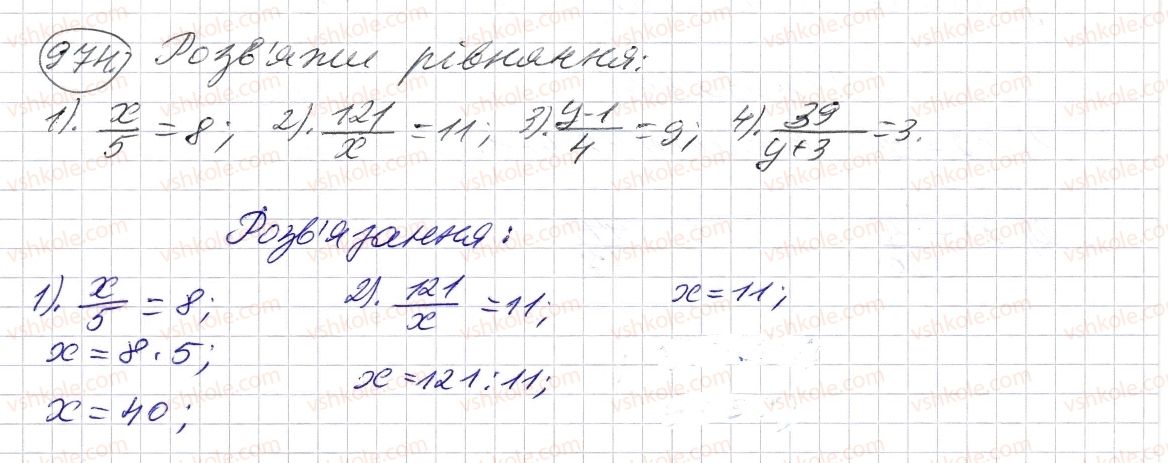 974. Розв'яжи рівняння:
1). x/5 = 8; 2). 121/x = 11; 3). y-1/4 = 9; 4). 39/y+3 = 3.
Розв'язання:
1). x/5 = 8;
x = 8 · 5;
x = 40;
2). 121/x = 11;
x = 121 : 11;
x = 11;